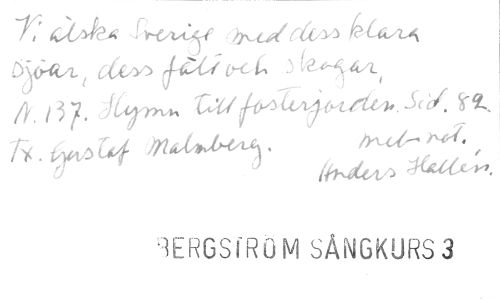 Vi älska Sverige med dess klara
sjöar, dess fält och skogar,
N. 137. Hymn till fosterjorden. Sid. 82.
Tx. Gustaf Malmberg. mel. not.
Anders Hallén.
BERGSTRÖM SÅNGKURS 3